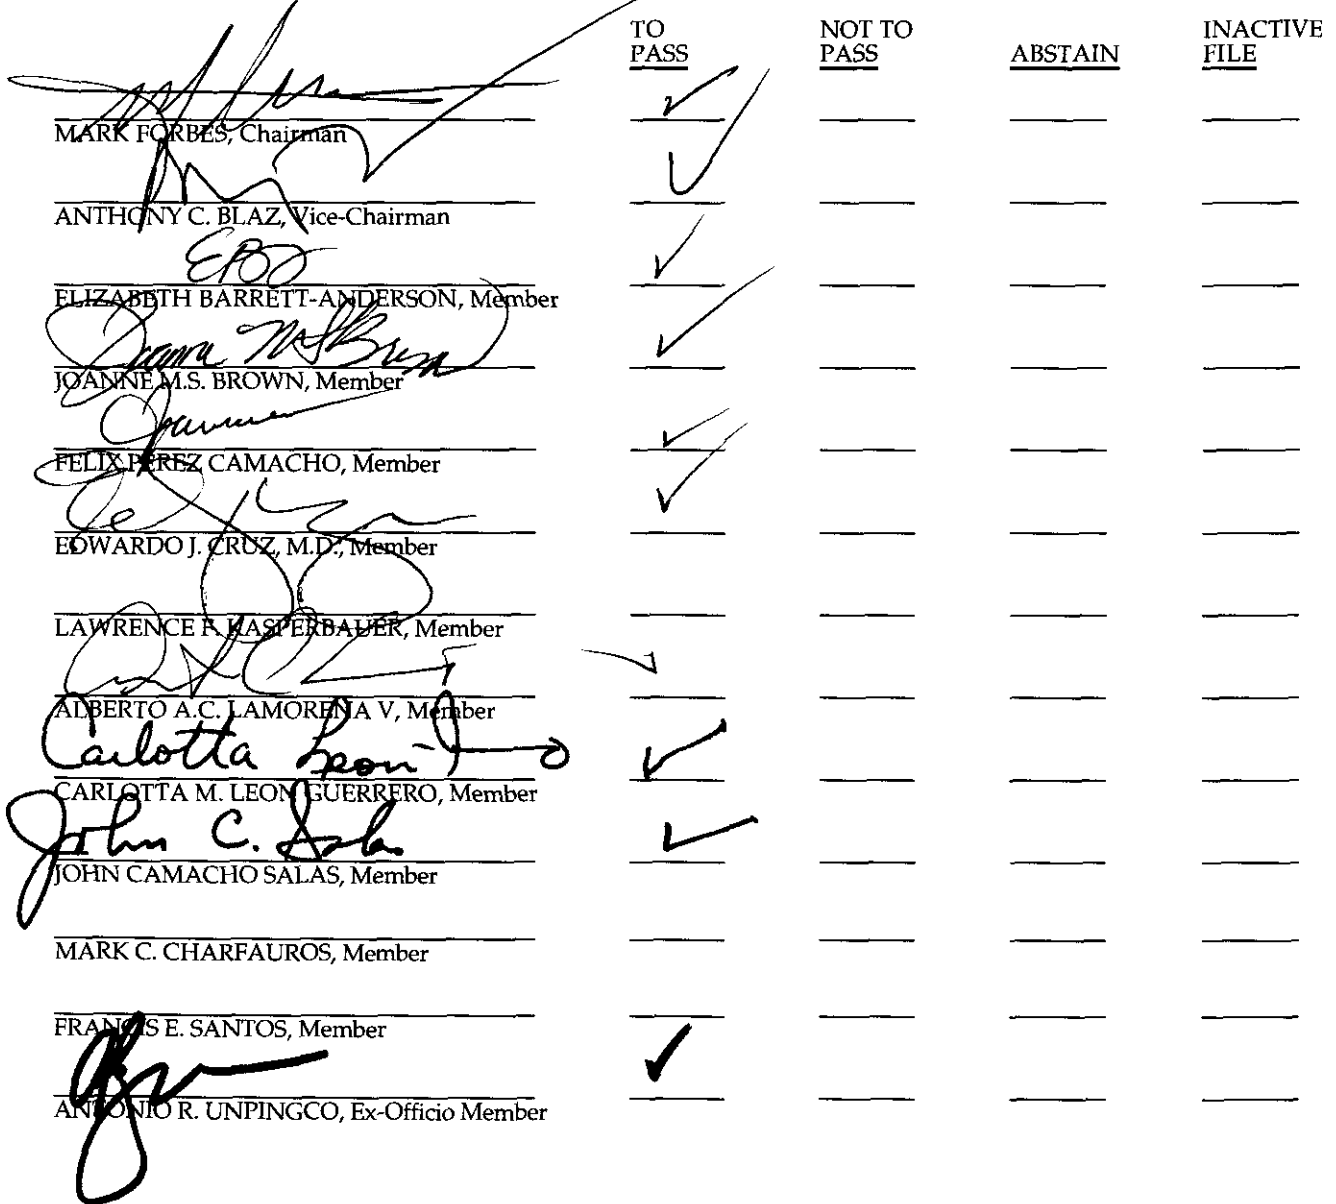 TO PASS NOT TO PASS ABSTAIN INACTIVE FILE
MARK FORBES, Chairman
ANTHONY C. BLAZ, Vice-Chairman
ELIZABETH BARRETT-ANDERSON, Member
JOANNE M.S. BROWN, Member
FELIX PEREZ CAMACHO, Member
EDWARDO J. CRUZ, M.D., Member
LAWRENCE F. KASPERBAUER, Member
ALBERTO A.C. LAMORENA V, Member
Carlotta Leon
CARLOTTA M. LEON GUERRERO, Member
John C. Salas
JOHN CAMACHO SALAS, Member
MARK C. CHARFAUROS, Member
FRANCIS E. SANTOS, Member
ANTONIO R. UNPINGCO, Ex-Officio Member